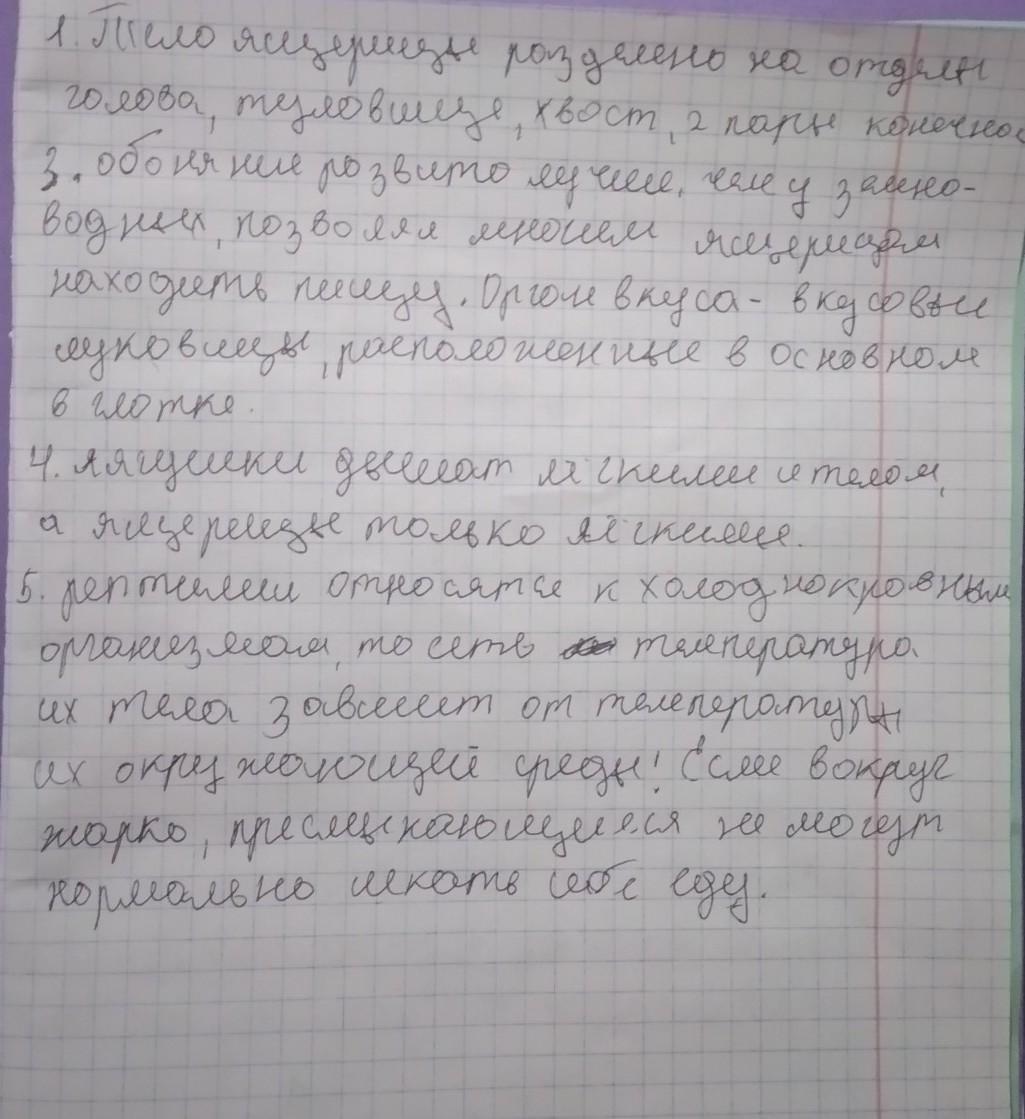 1. Тело ящерицы разделено на отделы
голова, туловище, хвост, 2 пары конечнос
3. обоняние развито лучше, чем у земно-
водных, позволяя многим ящерицам
находить пищу. Орган вкуса - вкусовые
луковицы, расположенные в основном
в глотке.
4. лягушки дышат лёгкими и телом,
а ящерицы только лёгкими.
5. рептилии относятся к холоднокровным
организмам, то есть температура
их тела зависит от температуры
их окружающей среды! Если вокруг
жарко, пресмыкающиеся не могут
нормально искать себе еду.